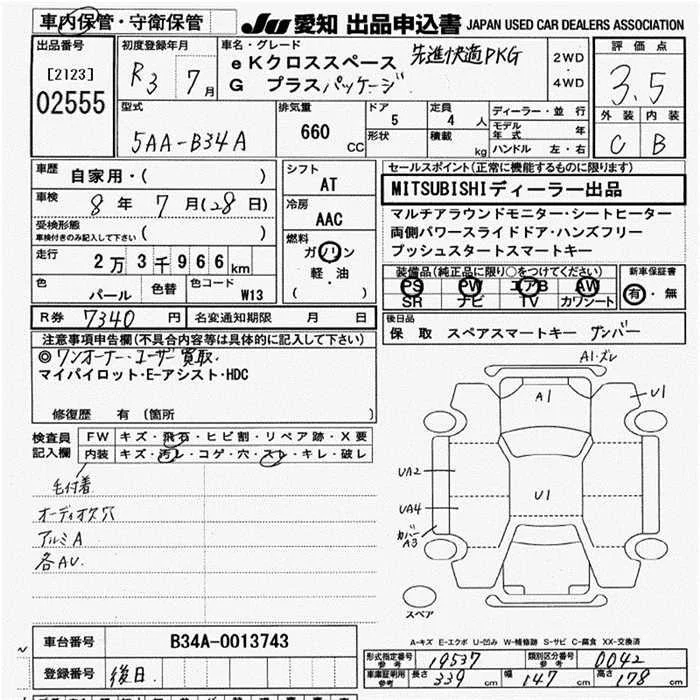 車内保管・守衛保管 JU 愛知 出品申込書 JAPAN USED CAR DEALERS ASSOCIATION
出品番号 初度登録年月 車名・グレード 評価点
[2123] R3 7月 eKクロススペース 先進快適PKG 2WD・4WD 3.5
02555 G プラスパッケージ
型式 排気量 ドア 定員 ディーラー・並行 外装 内装
5AA-B34A 660 CC 5 4人 モデル年式 年 C B
形状 積載 kg ハンドル 左・右
車歴 自家用・( ) シフト セールスポイント(正常に機能するものに限ります)
車検 8年 7月(28日) AT MITSUBISHIディーラー出品
受検形態 冷房 マルチアラウンドモニター・シートヒーター
車検付きのみ記入して下さい( ) AAC 両側パワースライドドア・ハンズフリー
走行 2万3千966km 燃料 プッシュスタートスマートキー
ガソリン 装備品(純正品に限り○をつけてください) 新車保証書
色 パール 色替 色コード W13 軽・油 PS PW エアB AW 有・無
( ) SR ナビ TV カワシート
R券 7340円 名変通知期限 月 日 後日品
注意事項申告欄(不具合内容等は具体的に記入して下さい) 保 取 スペアスマートキー ナンバー
◎ワンオーナー・ユーザー買取.
マイパイロット・E-アシスト・HDC
修復歴 有 (箇所 )
検査員記入欄 FW キズ・飛石・ヒビ割・リペア跡・X要
内装 キズ・汚レ・コゲ・穴・スレ・キレ・破レ
毛付着
オーディオ久穴
アルミA
各AU.
A1・ズレ
A1
U1
UA2
U1
UA4
カバーA3
スペア
A-キズ E-エクボ U-凹み W-補修跡 S-サビ C-腐食 XX-交換済
車台番号 B34A-0013743
形式指定番号 参考 19537 類別区分番号 参考 0042
登録番号 後日.
車庫証明用 参考 長さ 339cm 幅 147cm 高さ 178cm